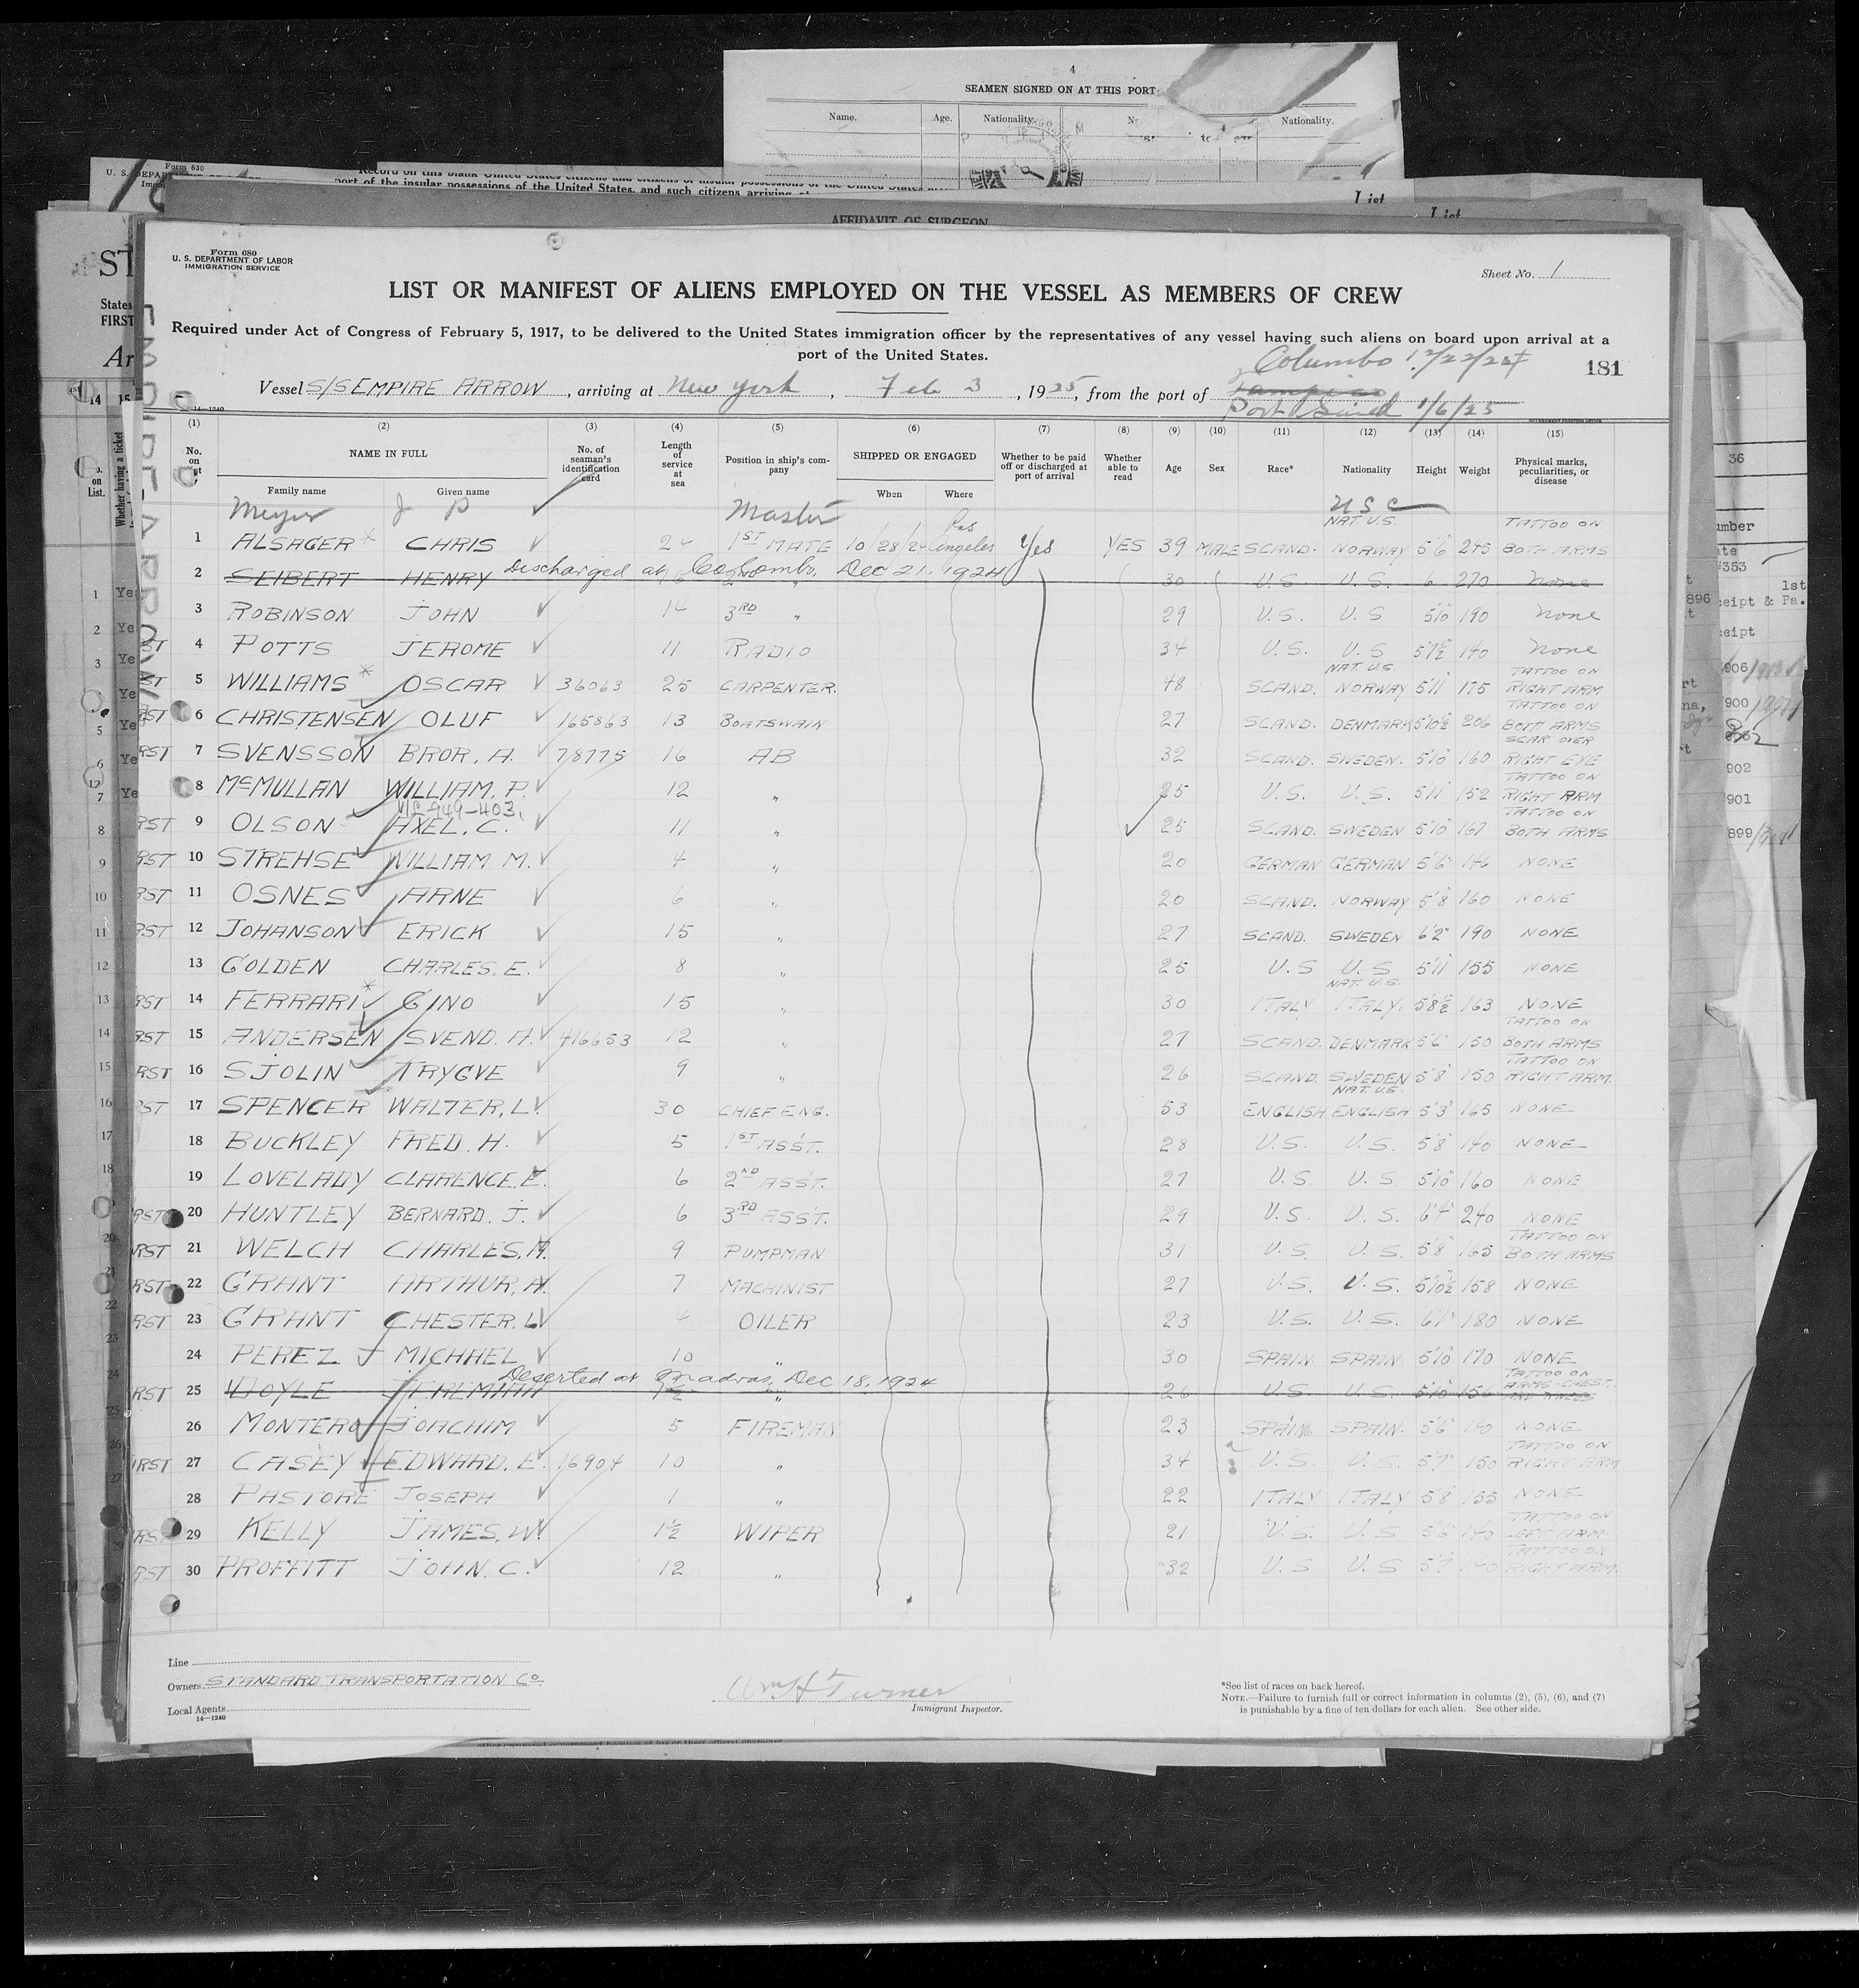 4
SEAMEN SIGNED ON AT THIS PORT
Name. Age. Nationality. Nationality.
Form 630
Record on this blank United States citizens and
port of the insular possessions of the United States, and such citizens arriving
List List
AFFIDAVIT OF SURGEON
Form 680
U. S. DEPARTMENT OF LABOR
IMMIGRATION SERVICE
Sheet No. 1
LIST OR MANIFEST OF ALIENS EMPLOYED ON THE VESSEL AS MEMBERS OF CREW
Required under Act of Congress of February 5, 1917, to be delivered to the United States immigration officer by the representatives of any vessel having such aliens on board upon arrival at a
port of the United States.
Columbo 12/22/24
181
Vessel S/S EMPIRE ARROW, arriving at New York, Feb 3, 1925, from the port of Tampico
Port Said 1/6/25
14—1240
(1) (2) (3) (4) (5) (6) (7) (8) (9) (10) (11) (12) (13) (14) (15)
No. on List NAME IN FULL No. of seaman's identification card Length of service at sea Position in ship's company SHIPPED OR ENGAGED Whether to be paid off or discharged at port of arrival Whether able to read Age Sex Race* Nationality Height Weight Physical marks, peculiarities, or disease
Family name Given name When Where
Meyer J P Master USC
1 ALSAGER CHRIS 24 1ST MATE 10/28/24 Los Angeles Yes YES 39 MALE SCAND. NAT. U.S. NORWAY 5'6 245 TATTOO ON BOTH ARMS
2 SEIBERT HENRY Discharged at Colombo, Dec 21, 1924 30 U.S. U.S. 6 270 None
3 ROBINSON JOHN 14 3RD " 29 U.S. U.S 5'10 190 None
4 POTTS JEROME 11 RADIO 34 U.S. U.S 5'7½ 140 None
5 WILLIAMS OSCAR 36063 25 CARPENTER. 48 SCAND. NAT. U.S. NORWAY 5'11 175 TATTOO ON RIGHT ARM
6 CHRISTENSEN OLUF 165863 13 BOATSWAIN 27 SCAND. DENMARK 5'10½ 206 TATTOO ON BOTH ARMS
7 SVENSSON BROR, A. 78775 16 AB 32 SCAND. SWEDEN. 5'10 160 SCAR OVER RIGHT EYE
8 McMULLAN WILLIAM, P. 12 " 25 U.S. U.S. 5'11 152 TATTOO ON RIGHT ARM
9 OLSON AXEL, C. 11 " 25 SCAND. SWEDEN 5'10 167 TATTOO ON BOTH ARMS
10 STREHSE WILLIAM M. 4 " 20 GERMAN GERMAN 5'6" 146 NONE
11 OSNES ARNE 6 " 20 SCAND. NORWAY 5'8 160 NONE
12 JOHANSON ERICK 15 " 27 SCAND. SWEDEN 6'2" 190 NONE
13 GOLDEN CHARLES. E. 8 " 25 U.S U.S 5'11 155 NONE
14 FERRARI GINO 15 " 30 ITALY NAT. U.S. ITALY. 5'8½ 163 NONE
15 ANDERSEN SVEND. A. 416653 12 " 27 SCAND. DENMARK 5'6" 150 TATTOO ON BOTH ARMS
16 SJOLIN TRYGVE 9 " 26 SCAND. SWEDEN 5'8" 150 TATTOO ON RIGHT ARM.
17 SPENCER WALTER, L. 30 CHIEF ENG. 53 ENGLISH NAT. U.S. ENGLISH 5'3" 165 NONE
18 BUCKLEY FRED. H. 5 1ST ASS'T. 28 U.S. U.S. 5'8" 140 NONE
19 LOVELADY CLARENCE. E. 6 2ND ASS'T. 27 U.S. U.S. 5'10 160 NONE
20 HUNTLEY BERNARD. J. 6 3RD ASS'T. 29 U.S. U.S. 6'4" 240 NONE
21 WELCH CHARLES, H. 9 PUMPMAN 31 U.S. U.S. 5'8" 165 TATTOO ON BOTH ARMS
22 GRANT ARTHUR, A. 7 MACHINIST 27 U.S. U.S. 5'10½ 158 NONE
23 GRANT CHESTER, L. 4 OILER 23 U.S. U.S. 6'1" 180 NONE
24 PEREZ MICHAEL 10 " 30 SPAIN. SPAIN. 5'10 170 NONE
25 DOYLE JEREMIAH Deserted at Madras, Dec 18, 1924 26 U.S. U.S. 5'10 156 TATTOO ON ARMS-CHEST.
26 MONTERO JOACHIM 5 FIREMAN 23 SPAIN SPAIN. 5'6" 140 NONE
27 CASEY EDWARD. E. 16904 10 " 34 U.S. U.S. 5'7" 150 TATTOO ON RIGHT ARM
28 PASTORE JOSEPH 1 " 22 ITALY ITALY 5'8" 155 NONE
29 KELLY JAMES, W. 1½ WIPER 21 U.S. U.S 5'6" 140 TATTOO ON LEFT ARM.
30 PROFFITT JOHN. C. 12 " 32 U.S U.S 5'7 140 TATTOO ON RIGHT ARM.
Line
Owners STANDARD TRANSPORTATION Co.
Local Agents
14—1240
Wm H Turner
Immigrant Inspector.
*See list of races on back hereof.
NOTE.—Failure to furnish full or correct information in columns (2), (5), (6), and (7)
is punishable by a fine of ten dollars for each alien. See other side.